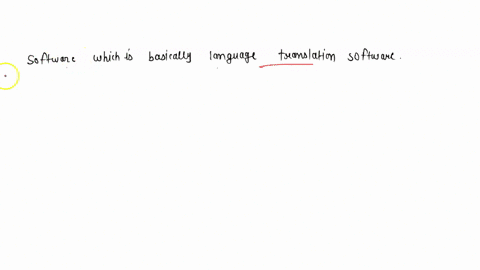 software which is basically language translation software.